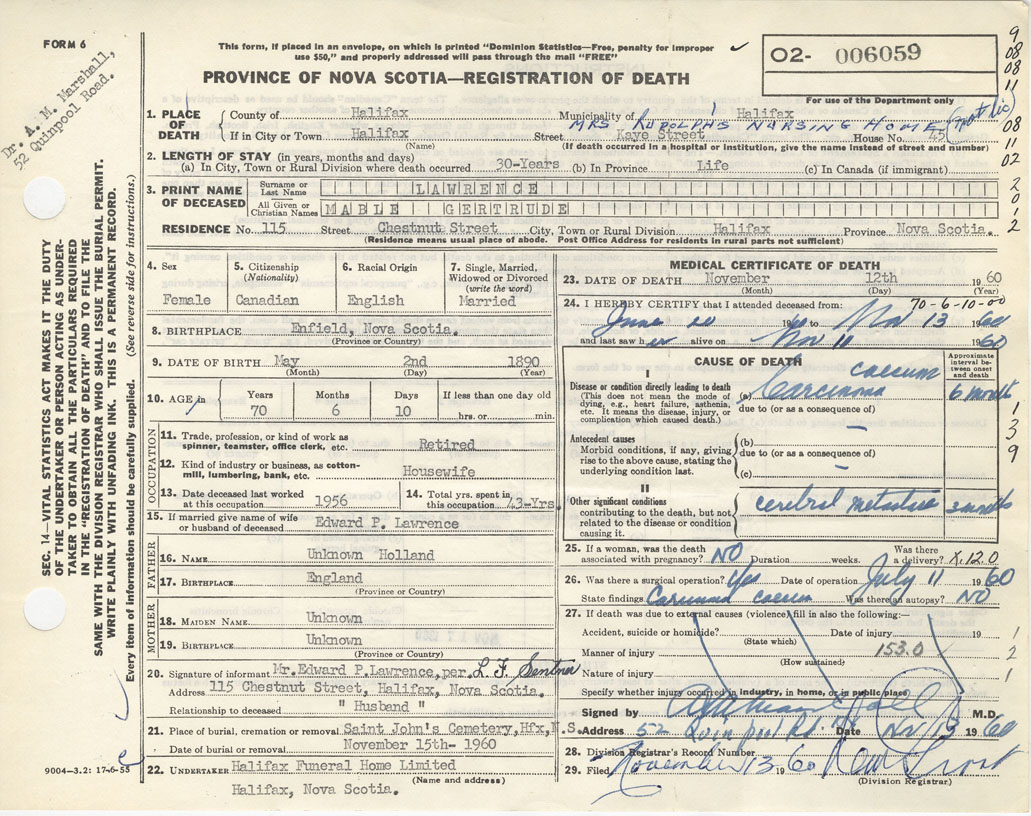 FORM 6
Dr. A. M. Marshall,
52 Quinpool Road.
This form, if placed in an envelope, on which is printed "Dominion Statistics—Free, penalty for improper
use $50," and properly addressed will pass through the mail "FREE"
PROVINCE OF NOVA SCOTIA—REGISTRATION OF DEATH
O2- 006059
For use of the Department only
1. PLACE OF DEATH
County of Halifax Municipality of Halifax
MRS RUDOLPHS NURSING HOME
If in City or Town Halifax Street Kaye Street House No. 45
(Name) (If death occurred in a hospital or institution, give the name instead of street and number)
2. LENGTH OF STAY (in years, months and days)
(a) In City, Town or Rural Division where death occurred 30-Years (b) In Province Life (c) In Canada (if immigrant)
3. PRINT NAME OF DECEASED
Surname or Last Name LAWRENCE
All Given or Christian Names MABLE GERTRUDE
RESIDENCE No. 115 Street Chestnut Street City, Town or Rural Division Halifax Province Nova Scotia.
(Residence means usual place of abode. Post Office Address for residents in rural parts not sufficient)
4. Sex Female
5. Citizenship (Nationality) Canadian
6. Racial Origin English
7. Single, Married, Widowed or Divorced (write the word) Married
8. BIRTHPLACE Enfield, Nova Scotia.
(Province or Country)
9. DATE OF BIRTH May 2nd 1890
(Month) (Day) (Year)
10. AGE in Years Months Days If less than one day old
70 6 10 hrs. or min.
OCCUPATION
11. Trade, profession, or kind of work as spinner, teamster, office clerk, etc. Retired
12. Kind of industry or business, as cotton-mill, lumbering, bank, etc. Housewife
13. Date deceased last worked at this occupation 1956
14. Total yrs. spent in this occupation 43-Yrs.
15. If married give name of wife or husband of deceased Edward P. Lawrence
FATHER
16. NAME Unknown Holland
17. BIRTHPLACE England
(Province or Country)
MOTHER
18. MAIDEN NAME Unknown
19. BIRTHPLACE Unknown
(Province or Country)
20. Signature of informant Mr. Edward P. Lawrence, per. L. F.
Address 115 Chestnut Street, Halifax, Nova Scotia.
Relationship to deceased " Husband "
21. Place of burial, cremation or removal Saint John's Cemetery, Hfx, N.S.
Date of burial or removal November 15th- 1960
22. UNDERTAKER Halifax Funeral Home Limited
(Name and address)
Halifax, Nova Scotia.
MEDICAL CERTIFICATE OF DEATH
23. DATE OF DEATH November 12th 1960
(Month) (Day) (Year)
70-6-10-00
24. I HEREBY CERTIFY that I attended deceased from:
June 1960 to Nov 13 1960
and last saw her alive on Nov 11 1960
CAUSE OF DEATH
Approximate interval between onset and death
I
Disease or condition directly leading to death
(This does not mean the mode of dying, e.g., heart failure, asthenia, etc. It means the disease, injury, or complication which caused death.)
(a) Carcinoma caecum 6 months
due to (or as a consequence of)
Antecedent causes
Morbid conditions, if any, giving rise to the above cause, stating the underlying condition last.
(b)
due to (or as a consequence of)
(c)
II
Other significant conditions
contributing to the death, but not related to the disease or condition causing it.
cerebral metastasis 3 months
25. If a woman, was the death associated with pregnancy? NO Duration weeks. Was there a delivery? X.12.0
26. Was there a surgical operation? Yes Date of operation July 11 1960
State findings Carcinoma caecum Was there an autopsy? NO
27. If death was due to external causes (violence) fill in also the following:—
Accident, suicide or homicide? Date of injury 19
(State which)
Manner of injury 153.0
(How sustained)
Nature of injury
Specify whether injury occurred in industry, in home, or in public place)
Signed by M.D.
Address 52 Quinpool Rd. Date Nov 13 1960
28. Division Registrar's Record Number
29. Filed November 13 1960
(Division Registrar.)
SEC. 14—VITAL STATISTICS ACT MAKES IT THE DUTY
OF THE UNDERTAKER OR PERSON ACTING AS UNDER-
TAKER TO OBTAIN ALL THE PARTICULARS REQUIRED
IN THE "REGISTRATION OF DEATH" AND TO FILE THE
SAME WITH THE DIVISION REGISTRAR WHO SHALL ISSUE THE BURIAL PERMIT.
WRITE PLAINLY WITH UNFADING INK. THIS IS A PERMANENT RECORD.
Every item of information should be carefully supplied. (See reverse side for instructions.)
9004-3.2: 17-6-55
9
08
08
11
08
11
02
2
0
1
2
1
3
9
1
2
1